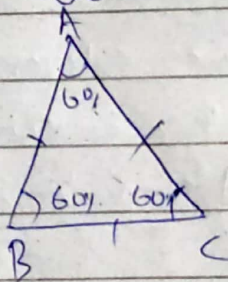 A
60%
60% 60%
B C